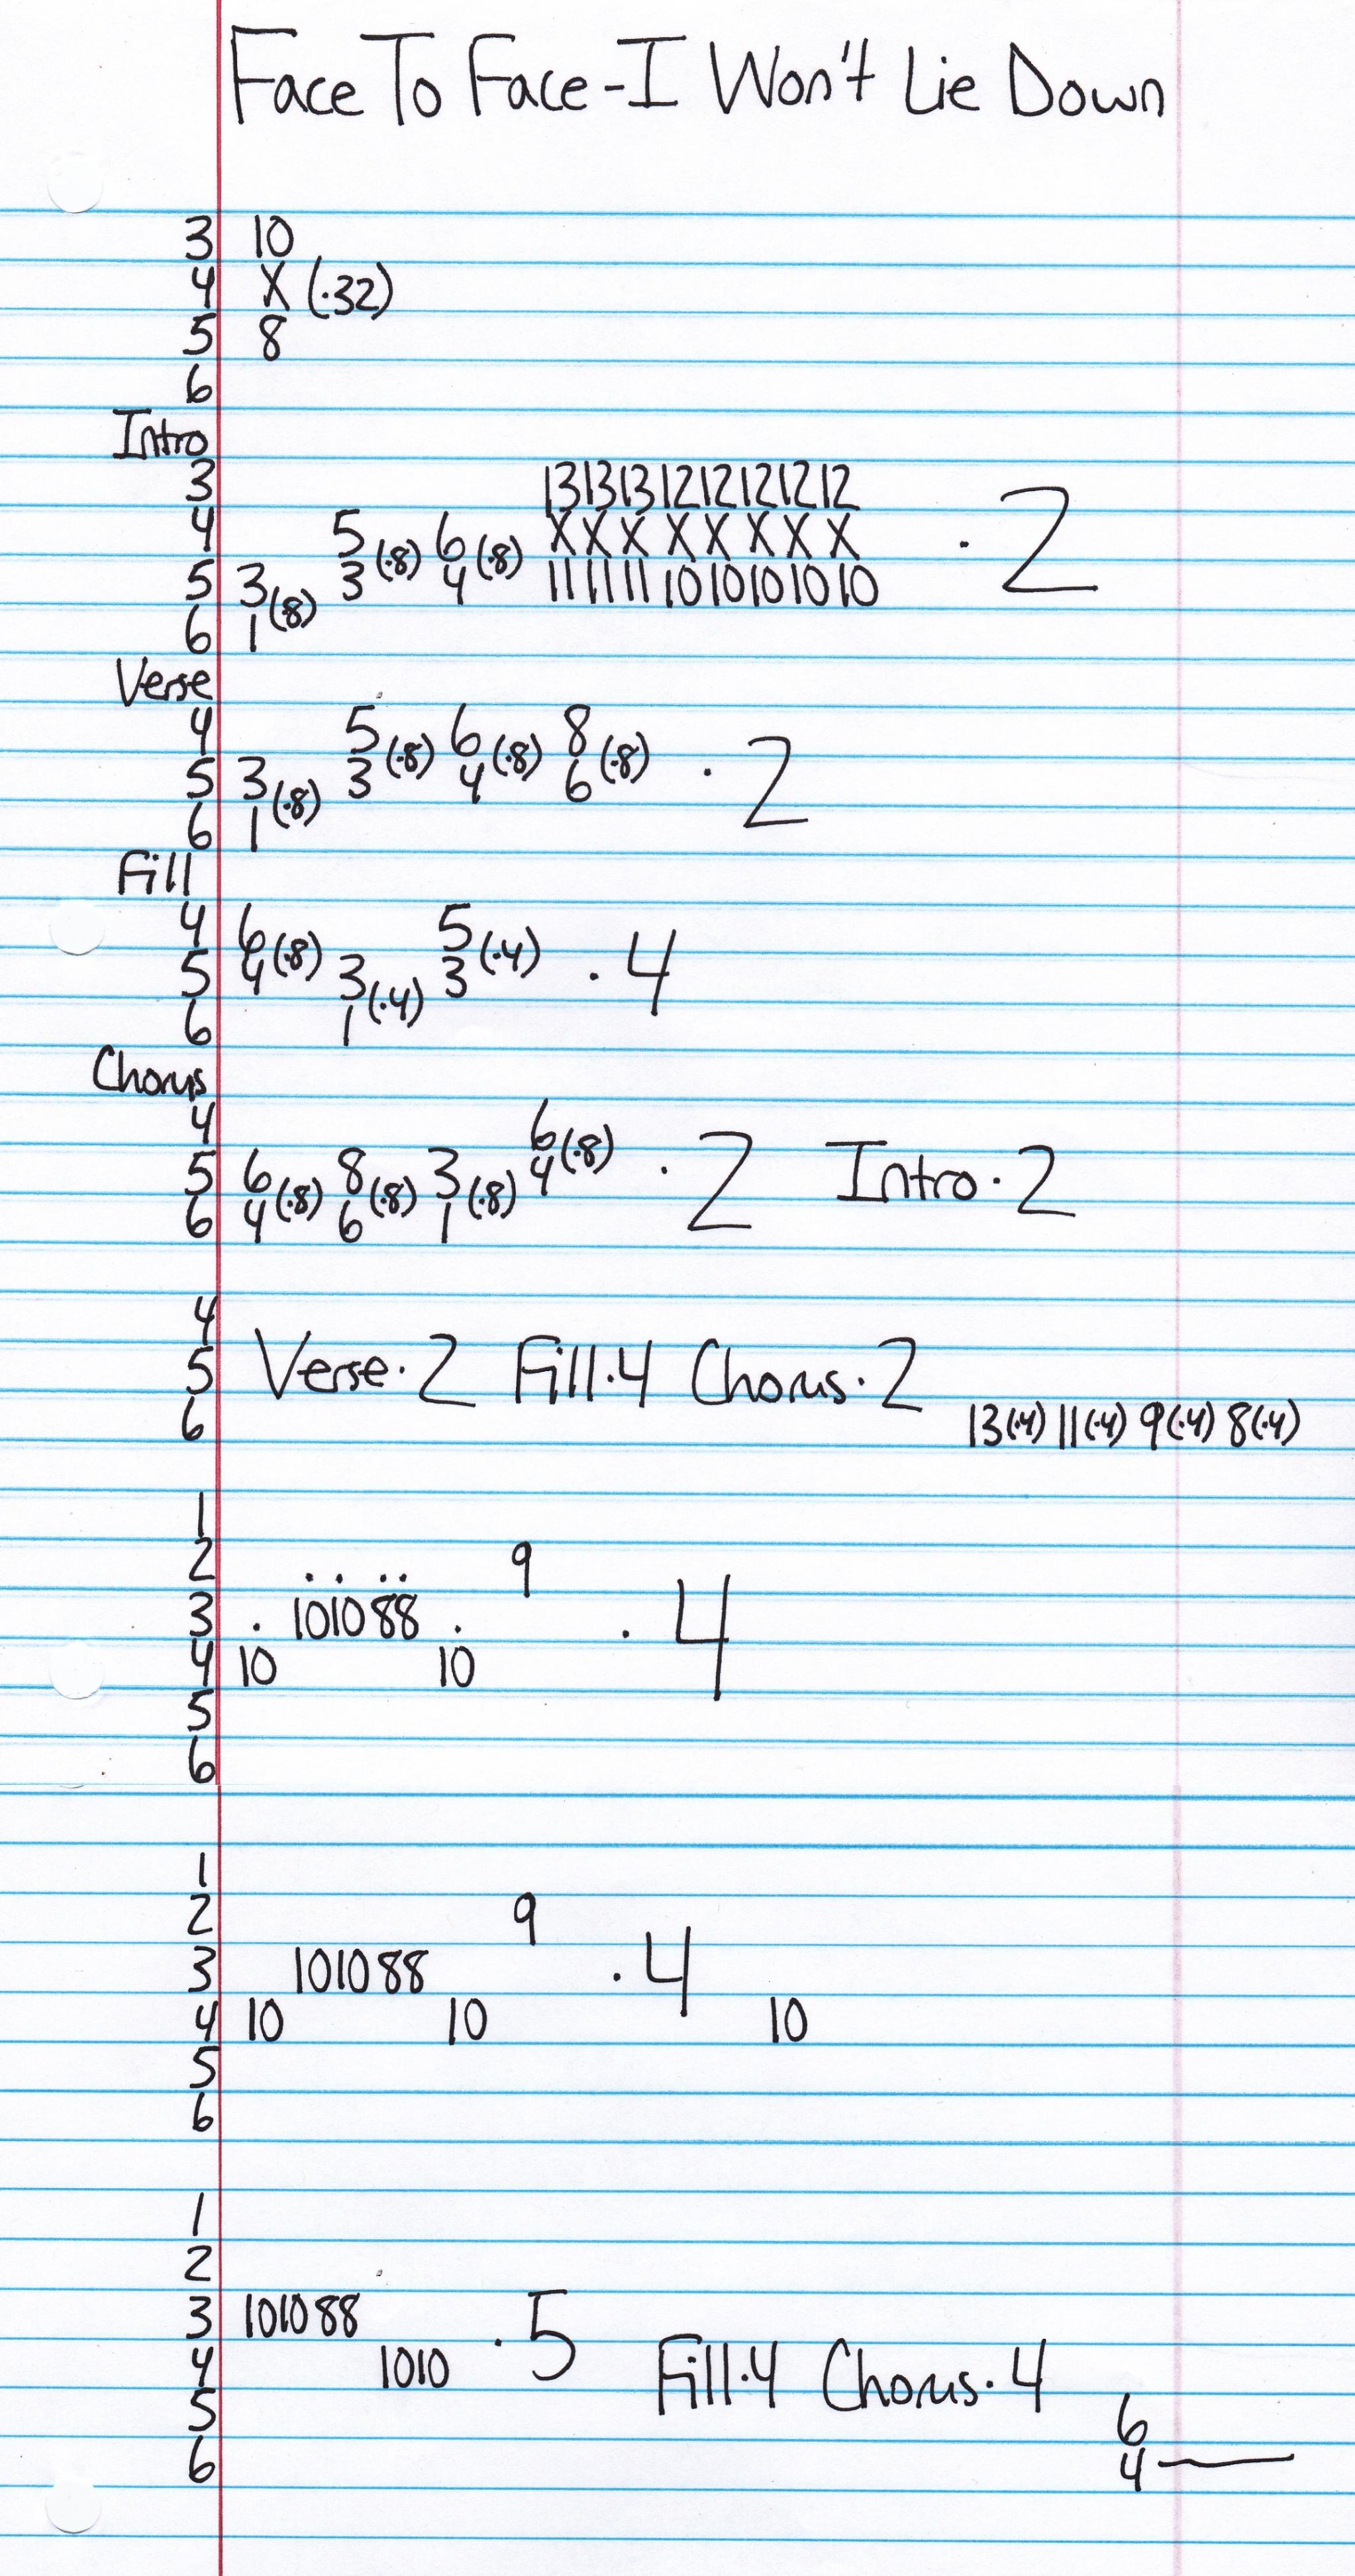 Face To Face - I Won't Lie Down
3 10
4 X (·32)
5 8
6
Intro
3 13 13 13 12 12 12 12 12
4 5 6 X X X X X X X X · 2
5 3 (·8) 3 (·8) 4 (·8) 11 11 11 10 10 10 10 10
6 1
Verse
4 5 6 8
5 3 (·8) 3 (·8) 4 (·8) 6 (·8) · 2
6 1
Fill
4 6 5
5 4 (·8) 3 (·4) 3 (·4) · 4
6 1
Chorus
4 6
5 6 (·8) 8 (·8) 3 (·8) 4 (·8) · 2 Intro · 2
6 4 6 1
4
5 Verse · 2 Fill · 4 Chorus · 2
6 13 (·4) 11 (·4) 9 (·4) 8 (·4)
1
2 . . . . 9
3 . 10 10 8 8 . · 4
4 10 10
5
6
1
2 9
3 10 10 8 8 · 4
4 10 10 10
5
6
1
2
3 10 10 8 8 · 5
4 10 10 Fill · 4 Chorus · 4
5 6
6 4